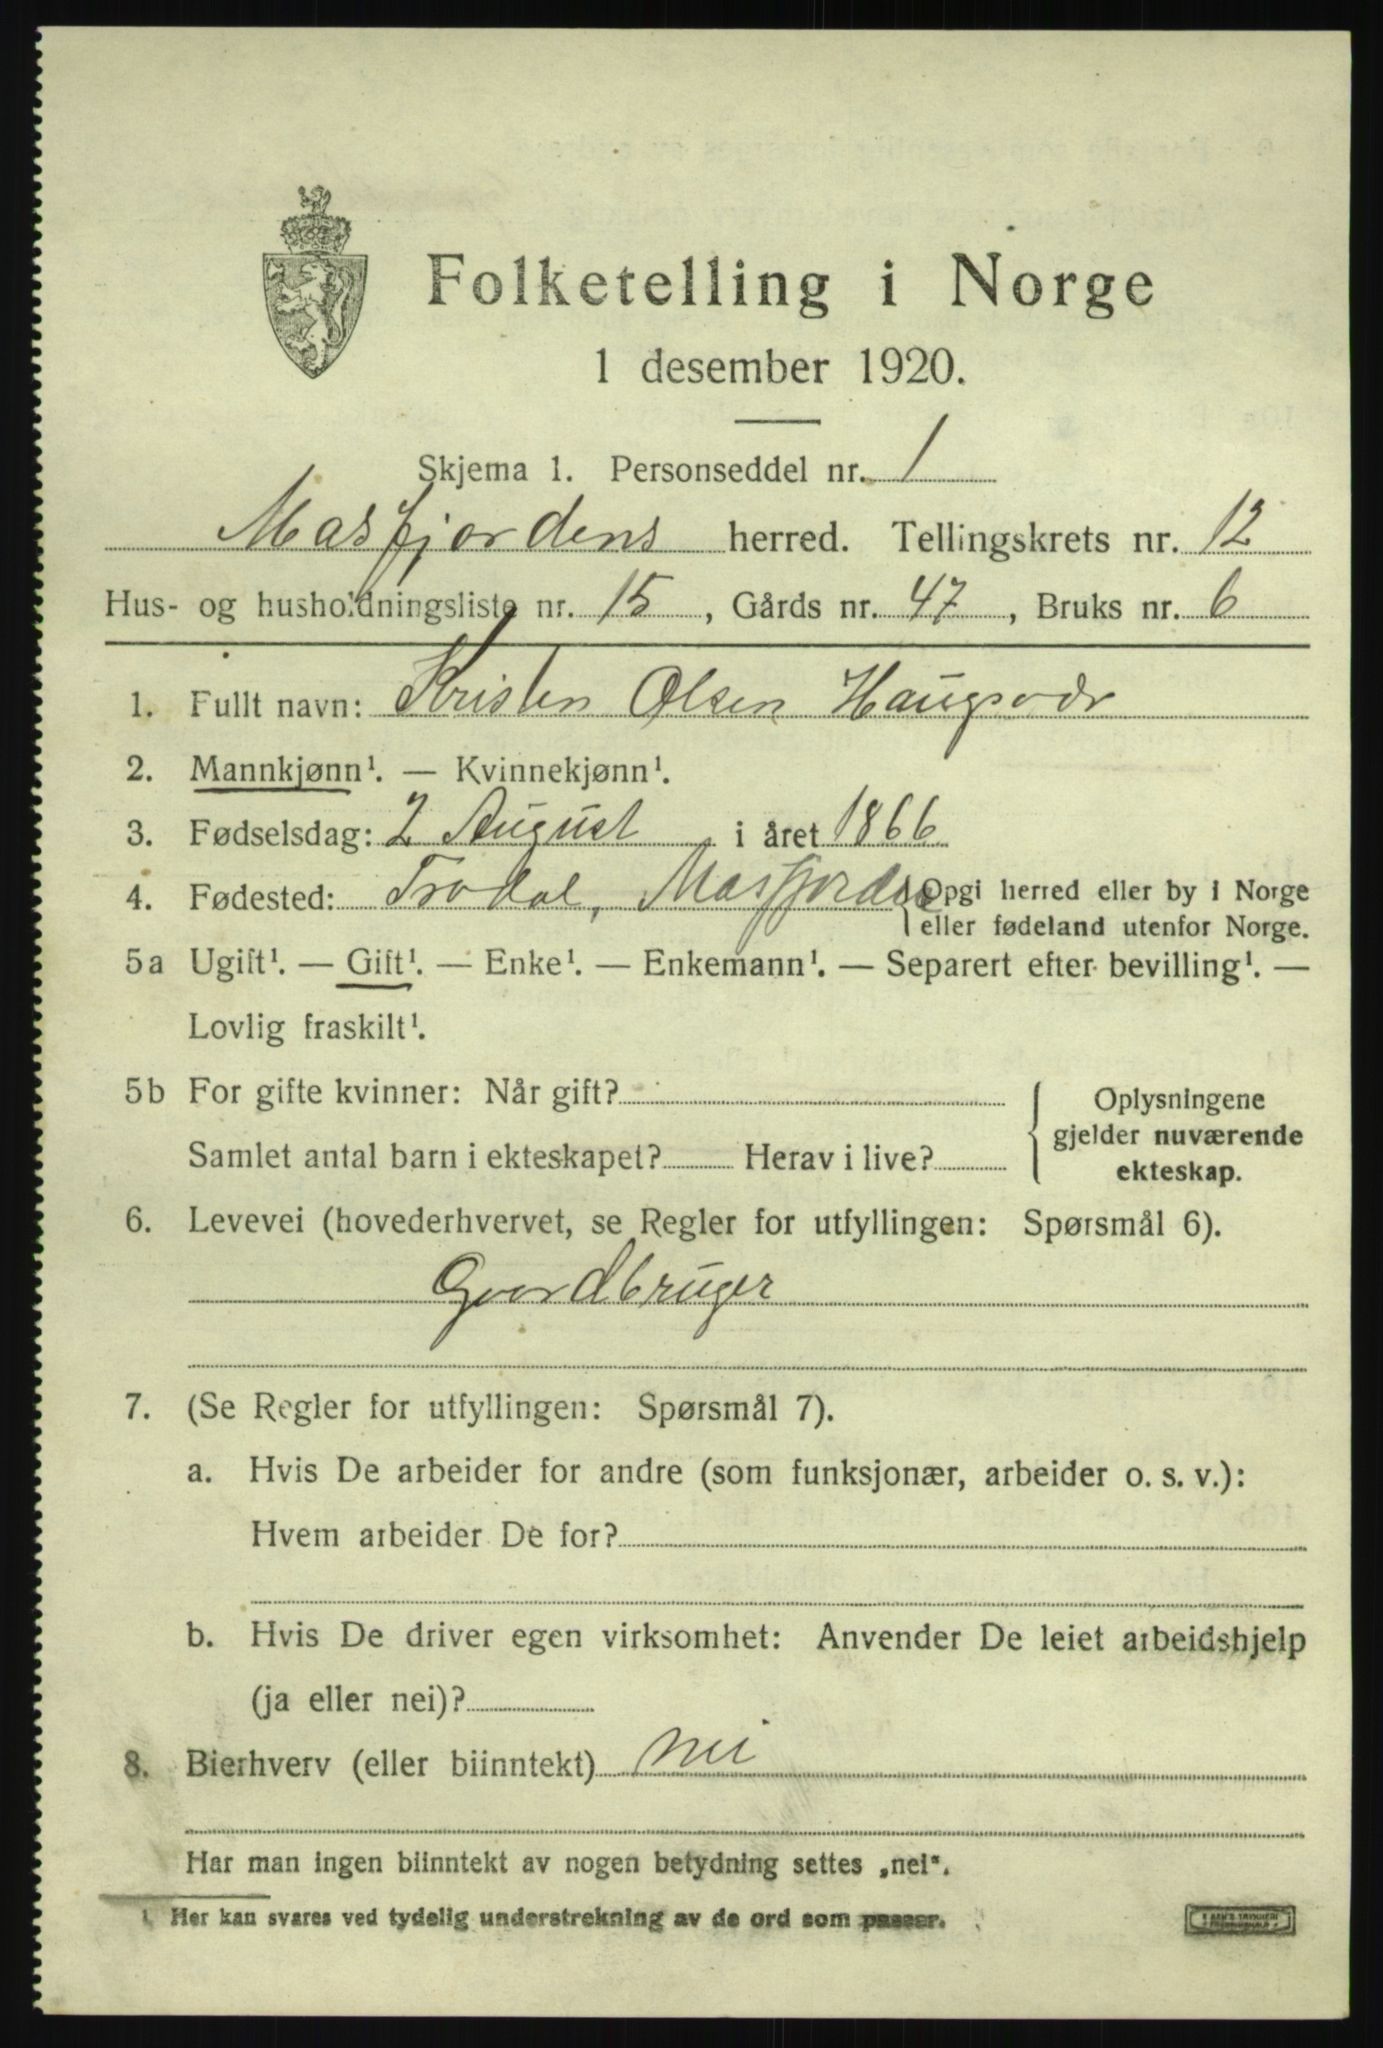 Folketelling i Norge
1 desember 1920.
Skjema 1. Personseddel nr. 1
Masfjordens herred. Tellingskrets nr. 12
Hus- og husholdningsliste nr. 15, Gårds nr. 47, Bruks nr. 6
1. Fullt navn: Kristen Olsen Haugsvær
2. Mannkjønn¹. — Kvinnekjønn¹.
3. Fødselsdag: 2 August i året 1866
4. Fødested: Trodal, Masfjorden { Opgi herred eller by i Norge
eller fødeland utenfor Norge.
5a Ugift¹. — Gift¹. — Enke¹. — Enkemann¹. — Separert efter bevilling¹. —
Lovlig fraskilt¹.
5b For gifte kvinner: Når gift?
Samlet antal barn i ekteskapet? Herav i live?
{ Oplysningene
gjelder nuværende
ekteskap.
6. Levevei (hovederhvervet, se Regler for utfyllingen: Spørsmål 6).
Goordbruger
7. (Se Regler for utfyllingen: Spørsmål 7).
a. Hvis De arbeider for andre (som funksjonær, arbeider o. s. v.):
Hvem arbeider De for?
b. Hvis De driver egen virksomhet: Anvender De leiet arbeidshjelp
(ja eller nei)?
8. Bierhverv (eller biinntekt) nei
Har man ingen biinntekt av nogen betydning settes „nei“.
1. Her kan svares ved tydelig understrekning av de ord som passer.